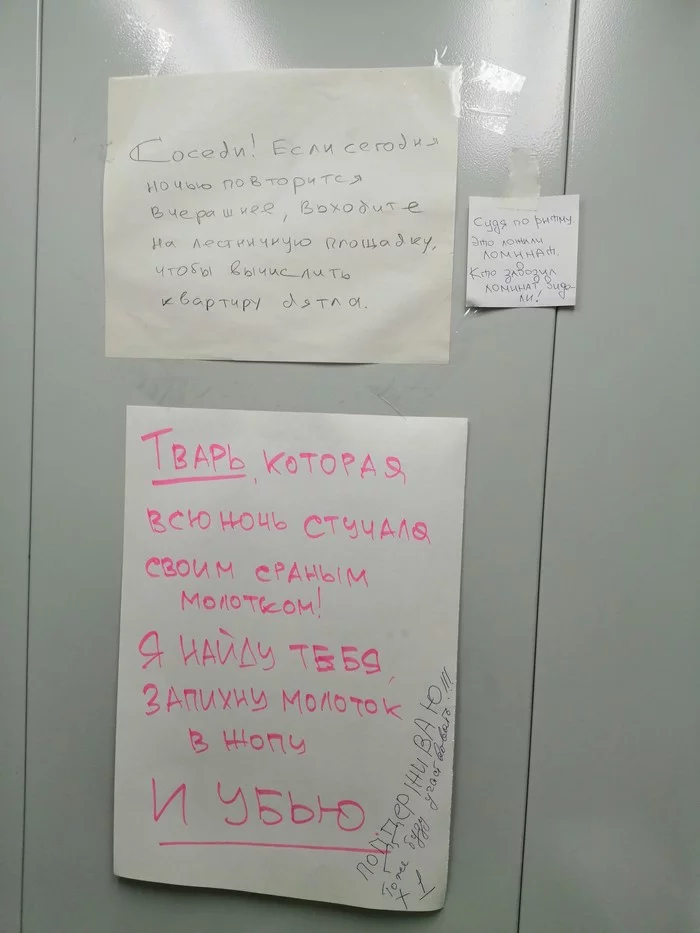 Соседи! Если сегодня
ночью повторится
вчерашнее, выходите
на лестничную площадку,
чтобы вычислить
квартиру дятла.
Судя по ритму.
Это ложили
ломинат.
Кто завозил
ломинат вид
ли!
Тварь, которая
всю ночь стучала
своим сраным
молотком!
Я найду тебя,
запихну молоток
в жопу
и убью
ПОДДЕРЖИВАЮ
Тоже буду участвовать!!!